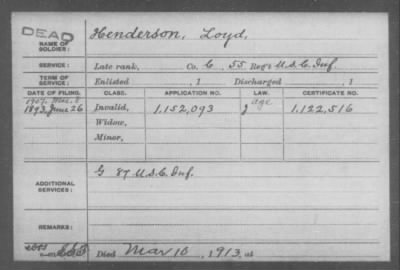 DEAD
NAME OF SOLDIER: Henderson, Loyd,
SERVICE: Late rank, Co. C, 55 Reg't U.S.C. Inf
TERM OF SERVICE: Enlisted , 1 Discharged , 1
DATE OF FILING. CLASS. APPLICATION NO. LAW. CERTIFICATE NO.
1907
1893, June 26 Invalid, 1,152,093 J age 1,122,516
Widow,
Minor,
ADDITIONAL SERVICES: G 87 U.S.C. Inf.
REMARKS:
Died Mar 10, 1913, at